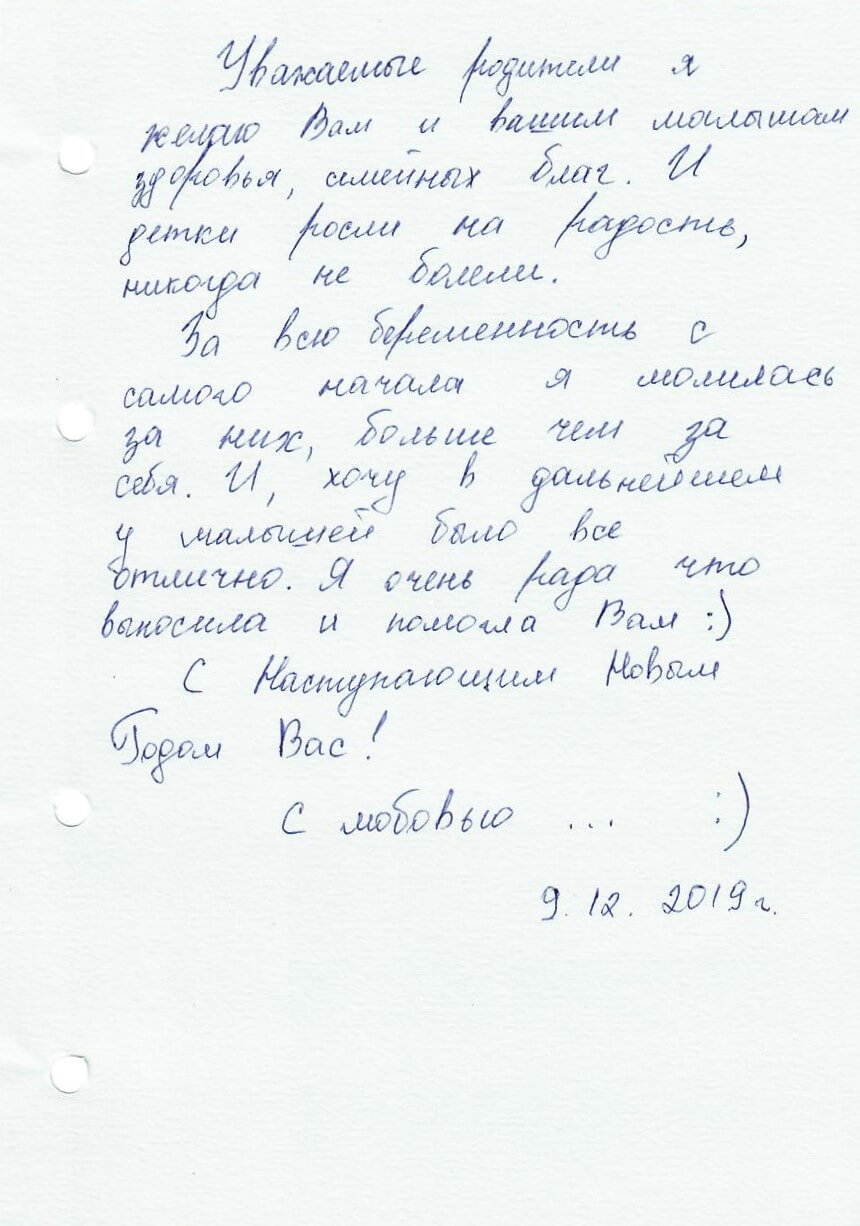 Уважаемые родители я
желаю Вам и вашим малышам
здоровья, семейных благ. И
детки росли на радость,
никогда не болели.
За всю беременность с
самого начала я молилась
за них, больше чем за
себя. И, хочу в дальнейшем
у малышей было все
отлично. Я очень рада что
выносила и помогла Вам :)
С Наступающим Новым
Годом Вас!
С любовью ... :)
9.12.2019г.